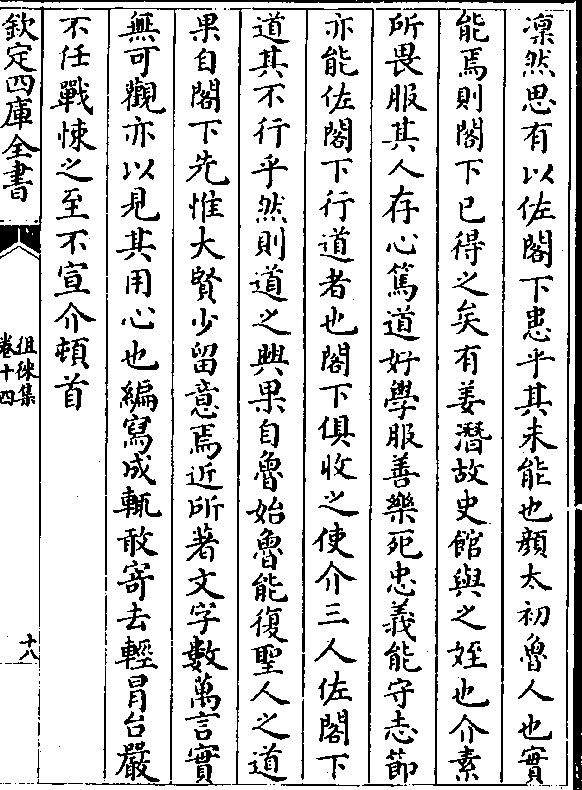 凜然思有以佐閣下患乎其未能也顔太初魯人也實
能焉則閣下已得之矣有姜潛故史館與之姪也介素
所畏服其人存心篤道好學服善樂死忠義能守志節
亦能佐閣下行道者也閣下俱收之使介三人佐閣下
道其不行乎然則道之興果自魯始魯能復聖人之道
果自閣下先惟大賢少留意焉近所著文字數萬言實
無可觀亦以見其用心也編寫成輒敢寄去輕冒台嚴
不任戰悚之至不宣介頓首
欽定四庫全書
徂徠集
卷十四
十八